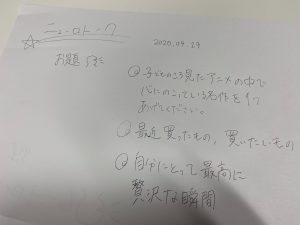 ニューロトーク
2020.09.29
お題
子どものころ見たアニメの中で
心にのこっている名作を1つ
あげてください。
最近買ったもの、買いたいもの
自分にとって最高に
贅沢な瞬間